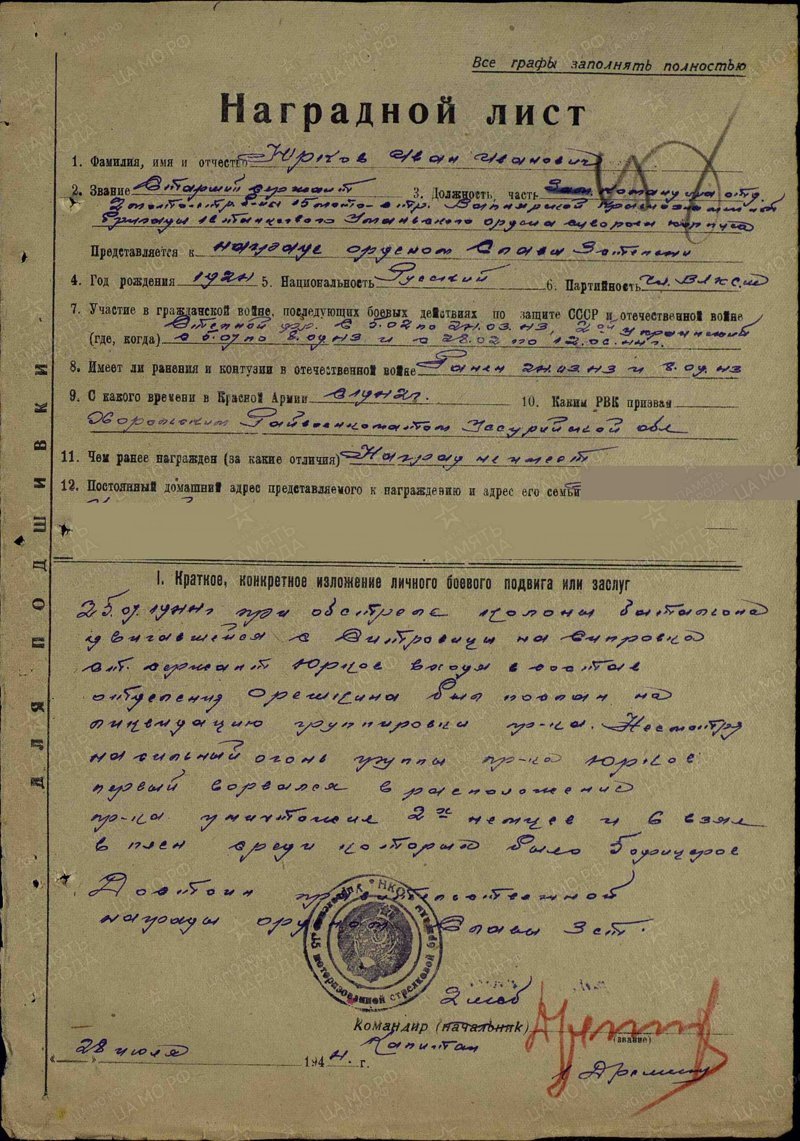 Все графы заполнять полностью
Наградной лист
1. Фамилия, имя и отчество Юрков Иван Иванович
2. Звание Старший сержант 3. Должность, часть командира отд.
2 мотостр. б-на 15 мото-стр.
бригады 16 танкового Уманьского ордена Суворова корпуса
Представляется к награде орденом Слава 3 степени
4. Год рождения 1924 5. Национальность Русский 6. Партийность чл. ВЛКСМ
7. Участие в гражданской войне, последующих боевых действиях по защите СССР и отечественной войне
(где, когда) Степной фр. с 5.02 по 24.03.43, 2ой Украинский
с 5.07 по 8.09.43 и с 28.02 по 12.06.44г.
8. Имеет ли ранения и контузии в отечественной войне Ранен 24.03.43 и 8.09.43
9. С какого времени в Красной Армии с 1942г. 10. Каким РВК призван
Хорольским Райвоенкоматом Уссурийской обл
11. Чем ранее награжден (за какие отличия) Наград не имеет
12. Постоянный домашний адрес представляемого к награждению и адрес его семьи
I. Краткое, конкретное изложение личного боевого подвига или заслуг
25.07.1944г при обстреле колоны батальона
двигавшейся с Дмитровици на Сипровка
ст. сержант Юрков входя в состав
отделения Орешкина был послан на
ликвидацию группировки пр-ка. Несмотря
на сильный огонь группы пр-ка Юрков
первый ворвался в расположение
пр-ка уничтожил 2х немцев и 6 взял
в плен среди которых было 5 офицеров
Достоин правительственной
награды орденом Слава 3 ст.
2 мсб
Командир (начальник)
(звание)
Капитан
28 июля 1944 г.
ДЛЯ ПОДШИВКИ
НКО
15 моторизованной стрелковой
ЦА МО РФ
ПАМЯТЬ НАРОДА